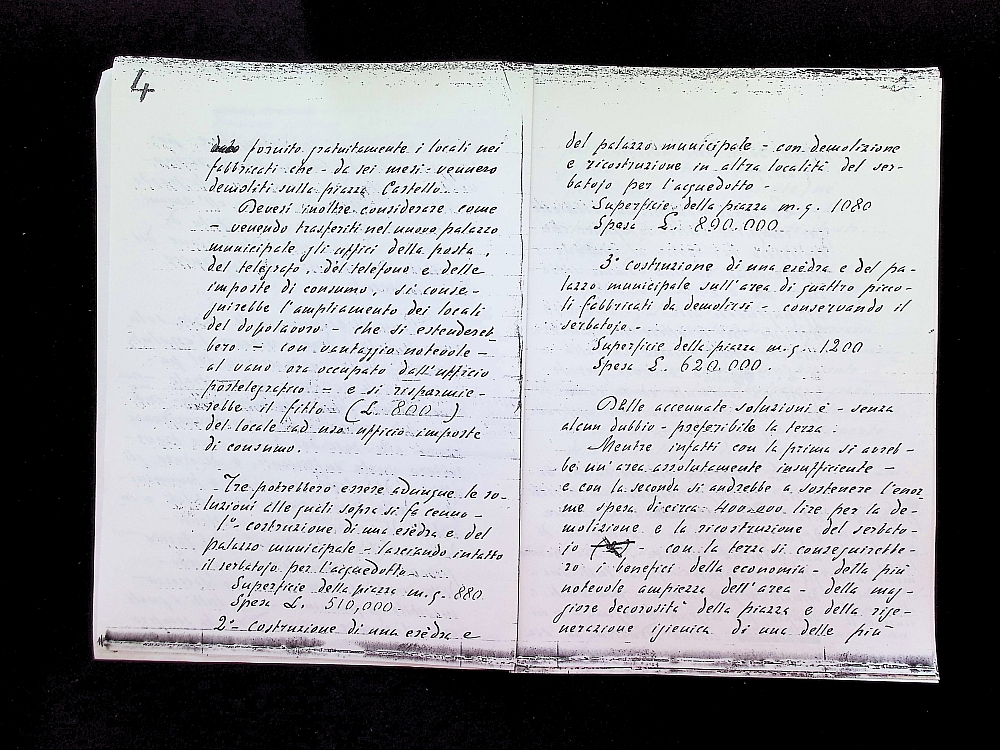 4
fornito gratuitamente i locali nei
fabbricati che - da sei mesi - vennero
demoliti sulla piazza Castello.
Devesi inoltre considerare come
- venendo trasferiti nel nuovo palazzo
municipale gli uffici della posta,
del telegrafo, del telefono e delle
imposte di consumo, si conse-
guirebbe l'ampliamento dei locali
del dopolavoro - che si estendereb
bero - con vantaggio notevole -
al vano ora occupato dall'ufficio
postelegrafico - e si risparmie-
rebbe il fitto (L. 800)
del locale ad uso ufficio imposte
di consumo.
Tre potrebbero essere adunque le so-
luzioni alle quali sopra si fa cenno -
1° - costruzione di una esèdra e del
palazzo municipale - lasciando intatto
il serbatojo per l'acquedotto -
Superficie della piazza m.q. 880
Spesa L. 510,000 -
2° - costruzione di una esèdra e
del palazzo municipale - con demolizione
e ricostruzione in altra località del ser-
batojo per l'acquedotto -
Superficie della piazza m.q. 1080
Spesa L. 890.000
3° costruzione di una esèdra e del pa-
lazzo municipale sull'area di quattro picco-
li fabbricati da demolirsi - conservando il
serbatojo -
Superficie della piazza m.q. 1200
Spesa L. 620.000.
Delle accennate soluzioni è - senza
alcun dubbio - preferibile la terza.
Mentre infatti con la prima si avreb-
be un'area assolutamente insufficiente -
e con la seconda si andrebbe a sostenere l'enor
me spesa di circa 400.000 lire per la de-
molizione e la ricostruzione del serbato-
jo - con la terza si conseguirebbe-
ro i benefici della economia - della più
notevole ampiezza dell'area - della mag-
giore decorosità della piazza e della rige-
nerazione igienica di una delle più